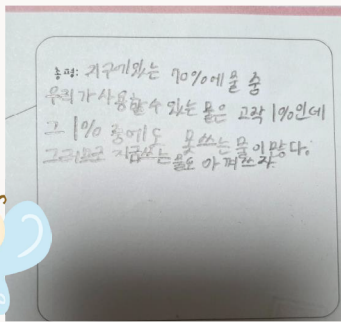 총평: 지구에있는 70%에 물 중
우리가 사용할 수 있는 물은 고작 1%인데
그 1% 중에도 못쓰는 물이 많다.
그러므로 지금쓰는 물도 아껴쓰자